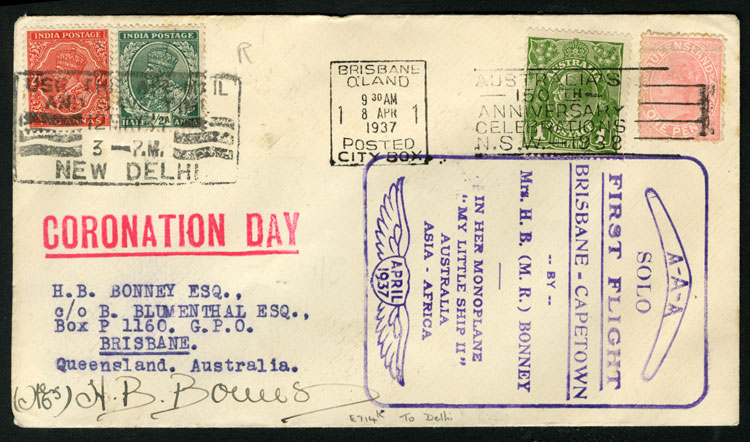 INDIA POSTAGE
INDIA POSTAGE
AS
HALF 1/2A ANNA
AIR MAIL
3 - P.M.
NEW DELHI
R
BRISBANE
Q'LAND
9 30 AM
1 8 APR 1
1937
POSTED
CITY BOX
AUSTRALIA'S
150TH
ANNIVERSARY
CELEBRATIONS
N.S.W.
QUEENSLAND
ONE PENNY
CORONATION DAY
H.B. BONNEY ESQ.,
c/o B. BLUMENTHAL ESQ.,
Box P 1160. G.P.O.
BRISBANE.
Queensland. Australia.
(Mrs) H. B. Bonney
E714k To Delhi
A-A-A
SOLO
FIRST FLIGHT
BRISBANE - CAPETOWN
-- BY --
Mrs. H. B. (M. R.) BONNEY
IN HER MONOPLANE
"MY LITTLE SHIP II"
AUSTRALIA
ASIA - AFRICA
APRIL
1937